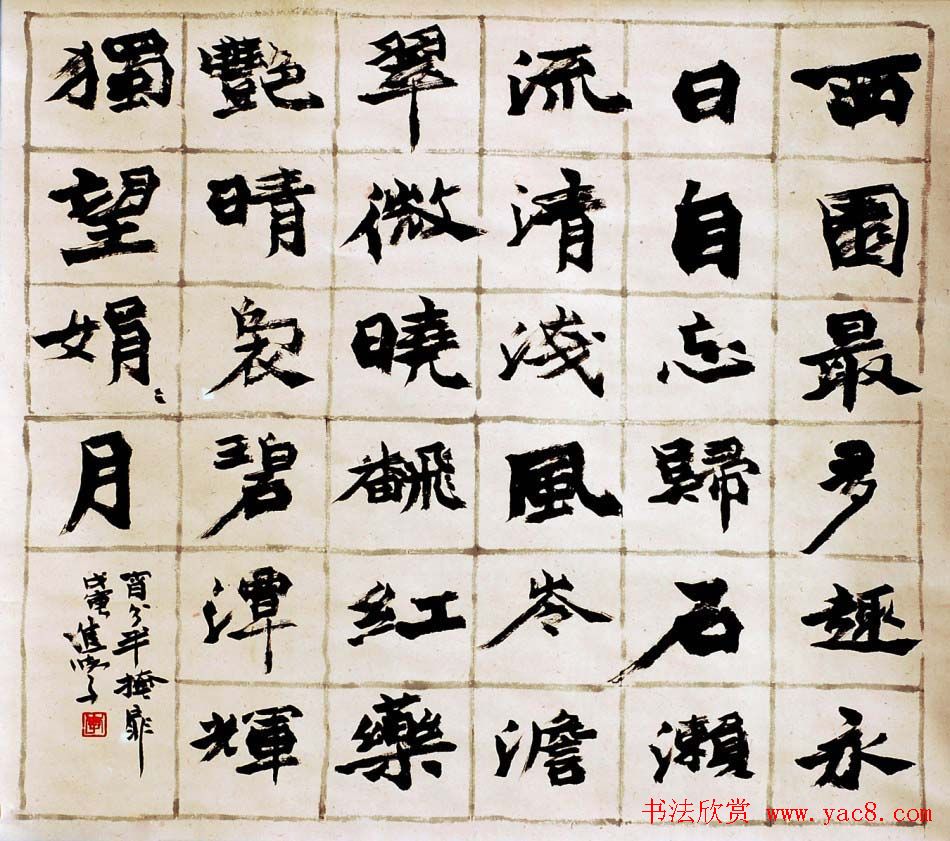 西園最多趣永
日自忘歸石瀨
流清淺風岑澹
翠微曉飜紅藥
艷晴裊碧潭輝
獨望娟〻月
宵分半掩扉
戊寅
书法欣赏 www.yac8.com